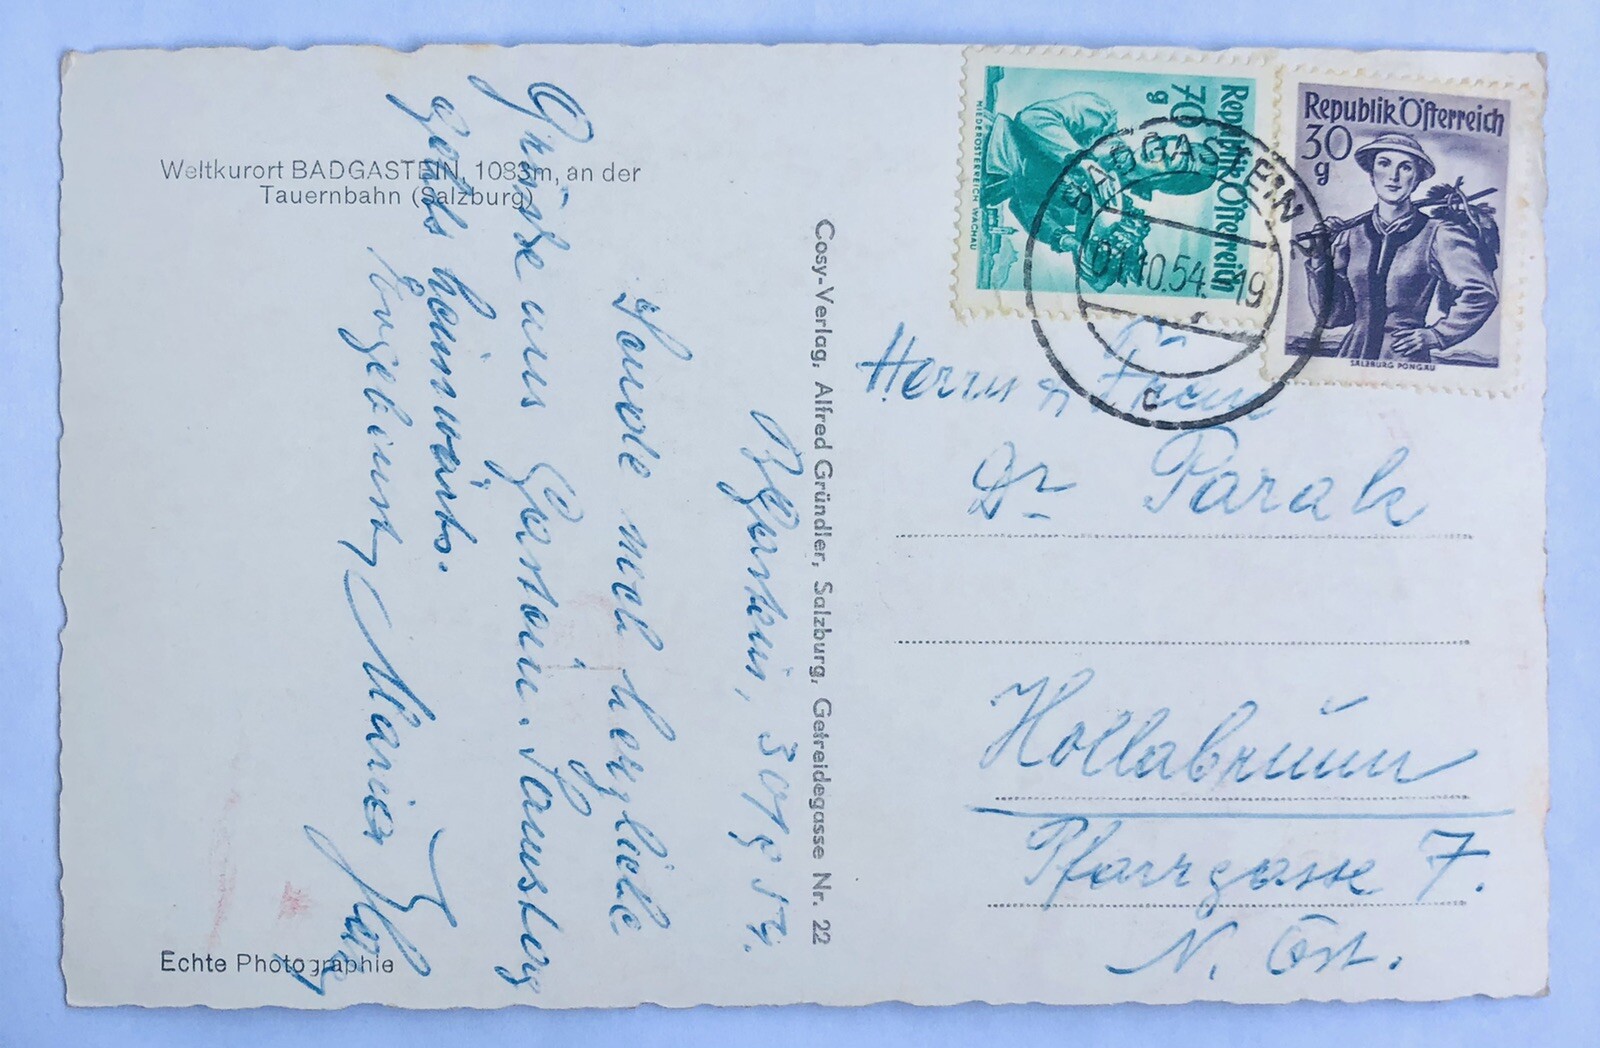 Weltkurort BADGASTEIN, 1083m, an der
Tauernbahn (Salzburg)
Bgastein, 30/9 54.
Sende noch herzliche
Grüße aus Gastein. Samstag
geht's heimwärts.
Ergebenst
Echte Photographie
Cosy-Verlag, Alfred Gründler, Salzburg, Getreidegasse Nr. 22
Republik Österreich
70 g
NIEDERÖSTERREICH WACHAU
Republik Österreich
30 g
SALZBURG PONGAU
BADGASTEIN 2
01.10.54. 19
c
Herrn u Frau
Dr Parak
Hollabrunn
Pfarrgasse 7.
N. Öst.